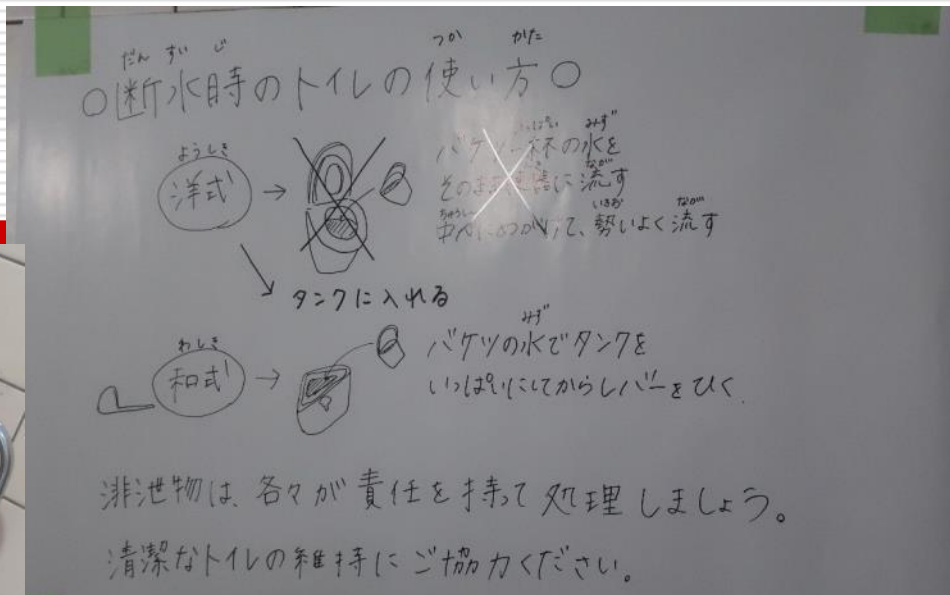 だん すい じ つか かた
○断水時のトイレの使い方○
ようしき
洋式 →
いっぱい みず
バケツ一杯の水を
なが
そのまま便器に流す
ちゅうしん いきお なが
中心にむかって、勢いよく流す
タンクに入れる
わしき
和式 →
みず
バケツの水でタンクを
いっぱいにしてからレバーをひく.
排泄物は、各々が責任を持って処理しましょう。
清潔なトイレの維持にご協力ください。